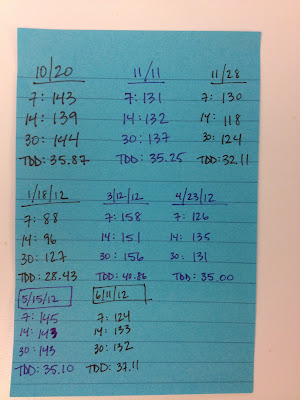 10/20
7: 143
14: 139
30: 144
TDD: 35.87
11/11
7: 131
14: 132
30: 137
TDD: 35.25
11/28
7: 130
14: 118
30: 124
TDD: 32.11
1/18/12
7: 88
14: 96
30: 127
TDD: 28.43
3/12/12
7: 158
14: 151
30: 156
TDD: 40.86
4/23/12
7: 126
14: 135
30: 131
TDD: 35.00
5/15/12
7: 145
14: 143
30: 143
TDD: 35.10
6/11/12
7: 124
14: 133
30: 132
TDD: 37.11